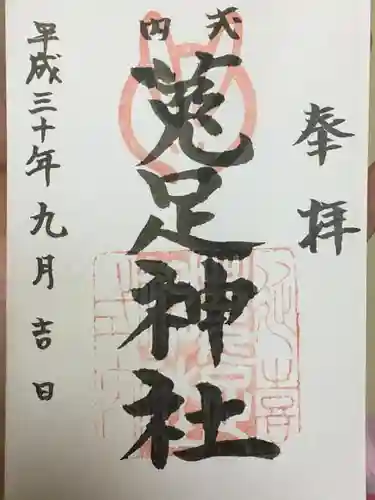 奉拝
式内
菟足神社
平成三十年九月吉日